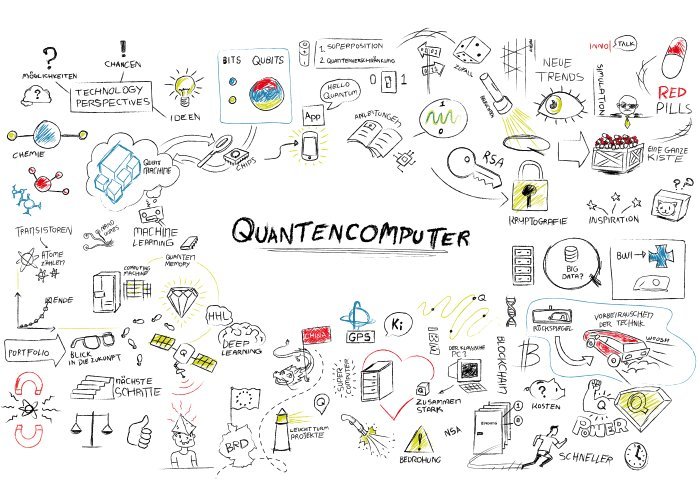 ?
!
MÖGLICHKEITEN
CHANCEN
TECHNOLOGY
PERSPECTIVES
IDEEN
BITS QUBITS
1. SUPERPOSITION
2. QUANTENVERSCHRÄNKUNG
HELLO
QUANTUM
0 1
ZUFALL
NEUE
TRENDS
INNO TALK
SIMULATION
RED
PILLS
App
CHIPS
ANLEITUNGEN
CHEMIE
QUBIT
MACHINE
RSA
EINE GANZE
KISTE
KRYPTOGRAFIE
INSPIRATION
??
TRANSISTOREN
ATOME
ZÄHLEN?
NANO
MACHINE
LEARNING
QUANTENCOMPUTER
COMPUTING
MACHINE
QUANTEN
MEMORY
BIG
DATA?
BWI
ENDE
HHL
DEEP
LEARNING
PORTFOLIO
BLICK
IN DIE ZUKUNFT
NÄCHSTE
SCHRITTE
CHINA
GPS
Ki
IBM
Q
DER KLASSISCHE
PC?
BLOCKCHAIN
RÜCKSPIEGEL
VORBEIRAUSCHEN
DER TECHNIK
WUOSH
SUPER
COMPUTER
ZUSAMMEN
STARK
KOSTEN
BRD
LEUCHTTURM
PROJEKTE
BEDROHUNG
NSA
Q
POWER
Q
SCHNELLER